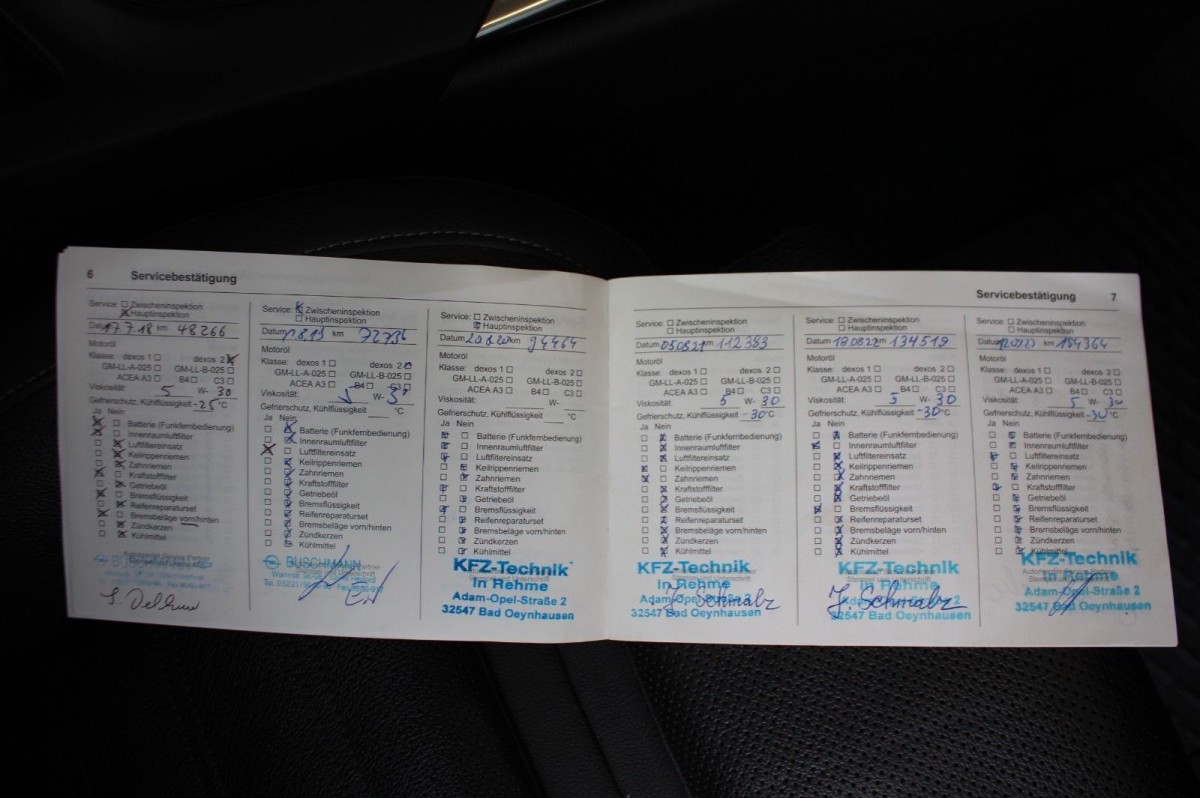 6 Servicebestätigung
Service: Zwischeninspektion
Hauptinspektion
Datum 17.7.18 km 48266
Motoröl
Klasse: dexos 1 dexos 2
GM-LL-A-025 GM-LL-B-025
ACEA A3 B4 C3
Viskosität: 5 W- 30
Gefrierschutz, Kühlflüssigkeit -25 °C
Ja Nein
Batterie (Funkfernbedienung)
Innenraumluftfilter
Luftfiltereinsatz
Keilrippenriemen
Zahnriemen
Kraftstofffilter
Getriebeöl
Bremsflüssigkeit
Reifenreparaturset
Bremsbeläge vorn/hinten
Zündkerzen
Kühlmittel
BUSCHMANN
Service: Zwischeninspektion
Hauptinspektion
Datum km
Motoröl
Klasse: dexos 1 dexos 2
GM-LL-A-025 GM-LL-B-025
ACEA A3 B4 C3
Viskosität: 5 W-
Gefrierschutz, Kühlflüssigkeit °C
Ja Nein
Batterie (Funkfernbedienung)
Innenraumluftfilter
Luftfiltereinsatz
Keilrippenriemen
Zahnriemen
Kraftstofffilter
Getriebeöl
Bremsflüssigkeit
Reifenreparaturset
Bremsbeläge vorn/hinten
Zündkerzen
Kühlmittel
BUSCHMANN
Service: Zwischeninspektion
Hauptinspektion
Datum km 94464
Motoröl
Klasse: dexos 1 dexos 2
GM-LL-A-025 GM-LL-B-025
ACEA A3 B4 C3
Viskosität: W-
Gefrierschutz, Kühlflüssigkeit °C
Ja Nein
Batterie (Funkfernbedienung)
Innenraumluftfilter
Luftfiltereinsatz
Keilrippenriemen
Zahnriemen
Kraftstofffilter
Getriebeöl
Bremsflüssigkeit
Reifenreparaturset
Bremsbeläge vorn/hinten
Zündkerzen
Kühlmittel
KFZ-Technik
in Rehme
Adam-Opel-Straße 2
32547 Bad Oeynhausen
Servicebestätigung 7
Service: Zwischeninspektion
Hauptinspektion
Datum 050821 km 112383
Motoröl
Klasse: dexos 1 dexos 2
GM-LL-A-025 GM-LL-B-025
ACEA A3 B4 C3
Viskosität: 5 W- 30
Gefrierschutz, Kühlflüssigkeit -30 °C
Ja Nein
Batterie (Funkfernbedienung)
Innenraumluftfilter
Luftfiltereinsatz
Keilrippenriemen
Zahnriemen
Kraftstofffilter
Getriebeöl
Bremsflüssigkeit
Reifenreparaturset
Bremsbeläge vorn/hinten
Zündkerzen
Kühlmittel
KFZ-Technik
in Rehme
Adam-Opel-Straße 2
J. Schmalz
32547 Bad Oeynhausen
Service: Zwischeninspektion
Hauptinspektion
Datum 180822 km 134519
Motoröl
Klasse: dexos 1 dexos 2
GM-LL-A-025 GM-LL-B-025
ACEA A3 B4 C3
Viskosität: 5 W- 30
Gefrierschutz, Kühlflüssigkeit -30 °C
Ja Nein
Batterie (Funkfernbedienung)
Innenraumluftfilter
Luftfiltereinsatz
Keilrippenriemen
Zahnriemen
Kraftstofffilter
Getriebeöl
Bremsflüssigkeit
Reifenreparaturset
Bremsbeläge vorn/hinten
Zündkerzen
Kühlmittel
KFZ-Technik
in Rehme
Adam-Opel-Straße 2
J. Schmalz
32547 Bad Oeynhausen
Service: Zwischeninspektion
Hauptinspektion
Datum km
Motoröl
Klasse: dexos 1 dexos 2
GM-LL-A-025 GM-LL-B-025
ACEA A3 B4 C3
Viskosität: 5 W- 30
Gefrierschutz, Kühlflüssigkeit -30 °C
Ja Nein
Batterie (Funkfernbedienung)
Innenraumluftfilter
Luftfiltereinsatz
Keilrippenriemen
Zahnriemen
Kraftstofffilter
Getriebeöl
Bremsflüssigkeit
Reifenreparaturset
Bremsbeläge vorn/hinten
Zündkerzen
Kühlmittel
KFZ-Technik
in Rehme
Adam-Opel-Straße 2
32547 Bad Oeynhausen